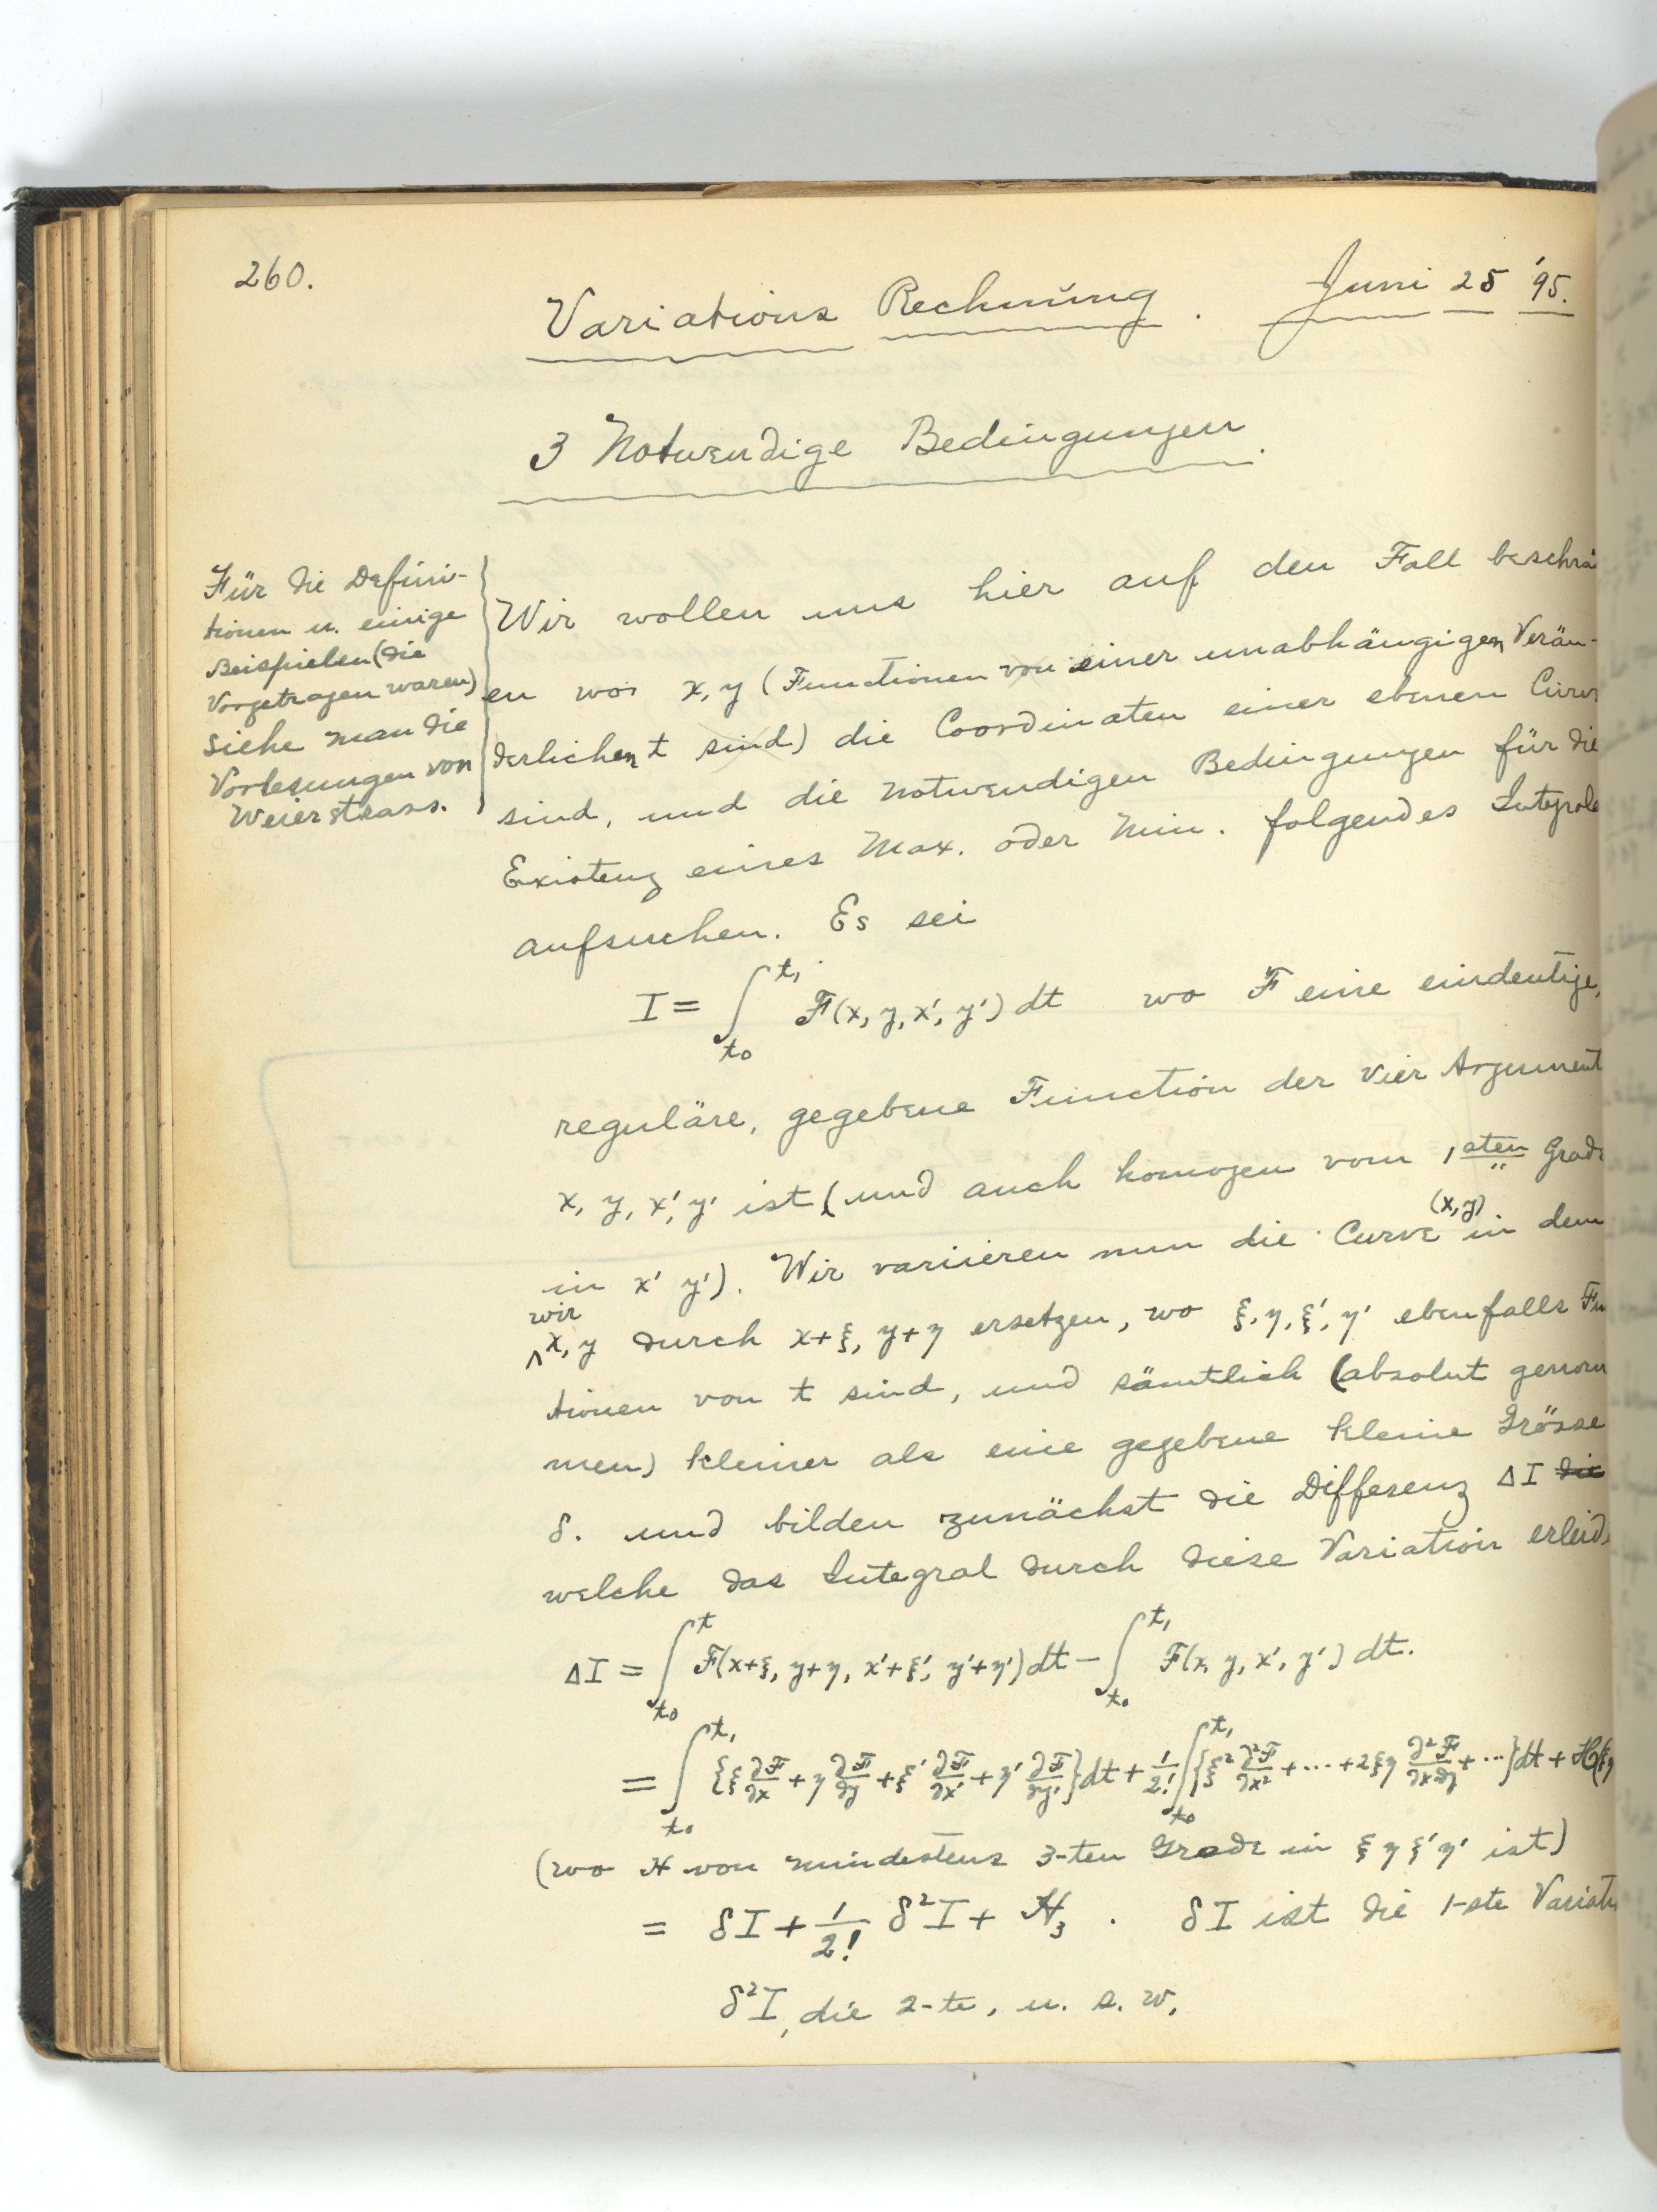 260.
Variations Rechnung. Juni 25 '95.
3 Notwendige Bedingungen.
Für die Defini-
tionen u. einige
Beispielen (die
Vorgetragen waren)
siehe man die
Vorlesungen von
Weierstrass.
Wir wollen uns hier auf den Fall beschrä
en wo x, y (Functionen von einer unabhängigen Verän-
derlichen t sind) die Coordinaten einer ebenen Curv
sind, und die notwendigen Bedingungen für die
Existenz eines Max. oder Min. folgendes Integrale
aufsuchen. Es sei
I = ∫_{t₀}^{t₁} F(x, y, x', y') dt wo F eine eindeutige,
reguläre, gegebene Function der vier Argument
x, y, x', y' ist (und auch homogen vom 1sten Grade
in x' y'). Wir variieren nun die Curve (x, y) in dem
wir x, y durch x+ξ, y+η ersetzen, wo ξ, η, ξ', η' ebenfalls Fu
tionen von t sind, und sämtlich (absolut genom
men) kleiner als eine gegebene kleine Grösse
δ. und bilden zunächst die Differenz ΔI die
welche das Integral durch diese Variation erleid
ΔI = ∫_{t₀}^{t} F(x+ξ, y+η, x'+ξ', y'+η') dt − ∫_{t₀}^{t₁} F(x, y, x', y') dt.
= ∫_{t₀}^{t₁} {ξ ∂F/∂x + η ∂F/∂y + ξ' ∂F/∂x' + η' ∂F/∂y'} dt + 1/2! ∫_{t₀}^{t₁} {ξ² ∂²F/∂x² + ··· + 2ξη ∂²F/∂x∂y + ···} dt + H(ξ, η
(wo H von mindestens 3-ten Grade in ξ η ξ' η' ist)
= δI + 1/2! δ²I + H₃. δI ist die 1-ste Variati
δ²I, die 2-te, u. s. w.